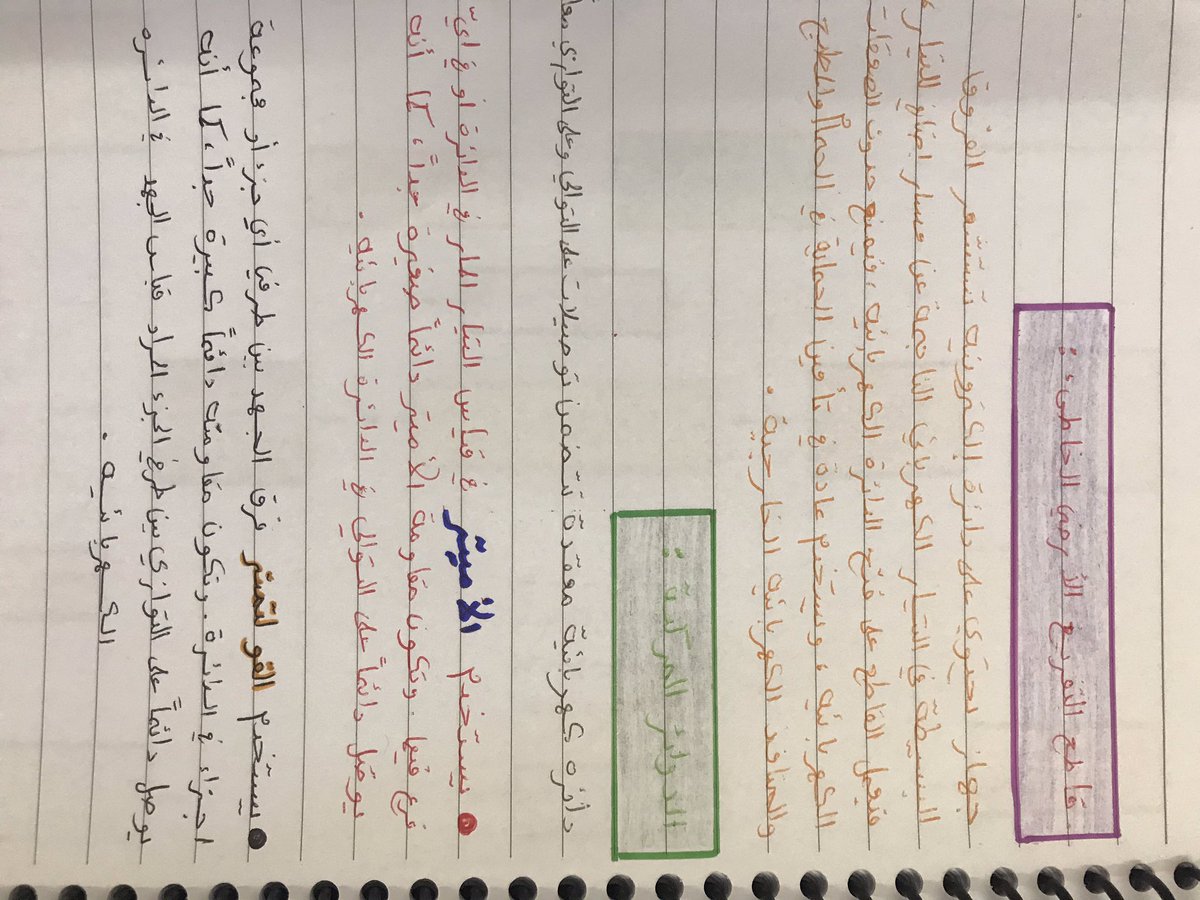 قاطع التفريغ الأرضي الخاطىء :
جهاز يحتوي على دائرة إلكترونية تستشعر الفروقا
البسيطة في التيار الكهربائي الناجمة عن مسار إضافي للتيار
فتعمل القاطع على فتح الدائرة الكهربائية، فيمنع حدوث الصعقات
الكهربائية، ويستخدم عادة في تأمين الحماية في الحمام والمطبخ
والمنافذ الكهربائية الخارجية .
الدوائر المركبة :
دائرة كهربائية معقدة تتضمن توصيلات على التوالي وعلى التوازي معاً
• يستخدم الأميتر في قياس التيار المار في الدائرة أو في أيّ
فرع فيها . وتكون مقاومة الأميتر دائماً صغيرة جداً، كما أنه
يوصل دائماً على التوالي في الدائرة الكهربائية .
• يستخدم الفولتميتر فرق الجهد بين طرفي أي جزء أو مجموعة
اجزاء في الدائرة . وتكون مقاومته دائماً كبيرة جداً، كما أنه
يوصل دائماً على التوازي بين طرفي الجزء المراد قياس الجهد في الدائره
الكهربائيه .